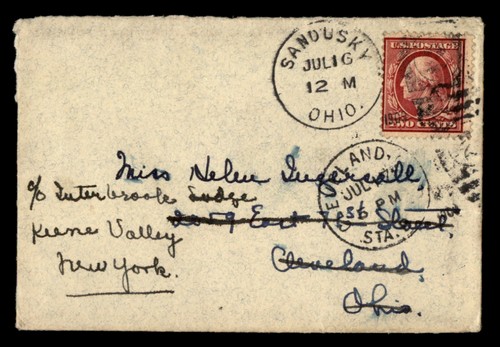 SANDUSKY
JUL 16
12 M
OHIO.
U.S. POSTAGE
TWO CENTS
CLEVELAND,
JUL
PM
STA.
Miss Helen Ingersoll,
c/o Interbrook Lodge
Keene Valley
New York.
East Street
Cleveland,
Ohio.